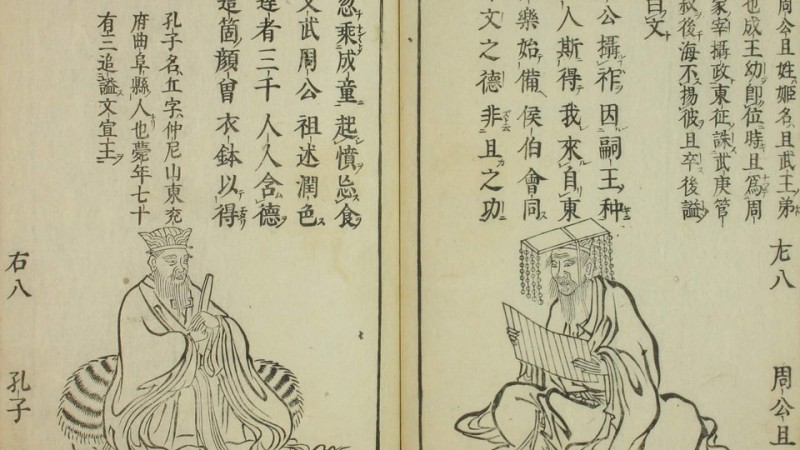 周公旦姓姬名旦武王弟
也成王幼即位時旦爲周
冢宰攝政東征誅武庚管
叔後海不揚彼旦卒後謚
曰文
公攝祚因嗣王种
人斯得我來自東
樂始備侯伯會同
文之德非旦之功
左八
周公旦
忽乘成童起憤忘食
文武周公祖述潤色
達者三千人人含德
這箇顔曽衣鉢以得
孔子名丘字仲尼山東兖
府曲阜縣人也夢年七十
有三追謚文宣王
右八
孔子